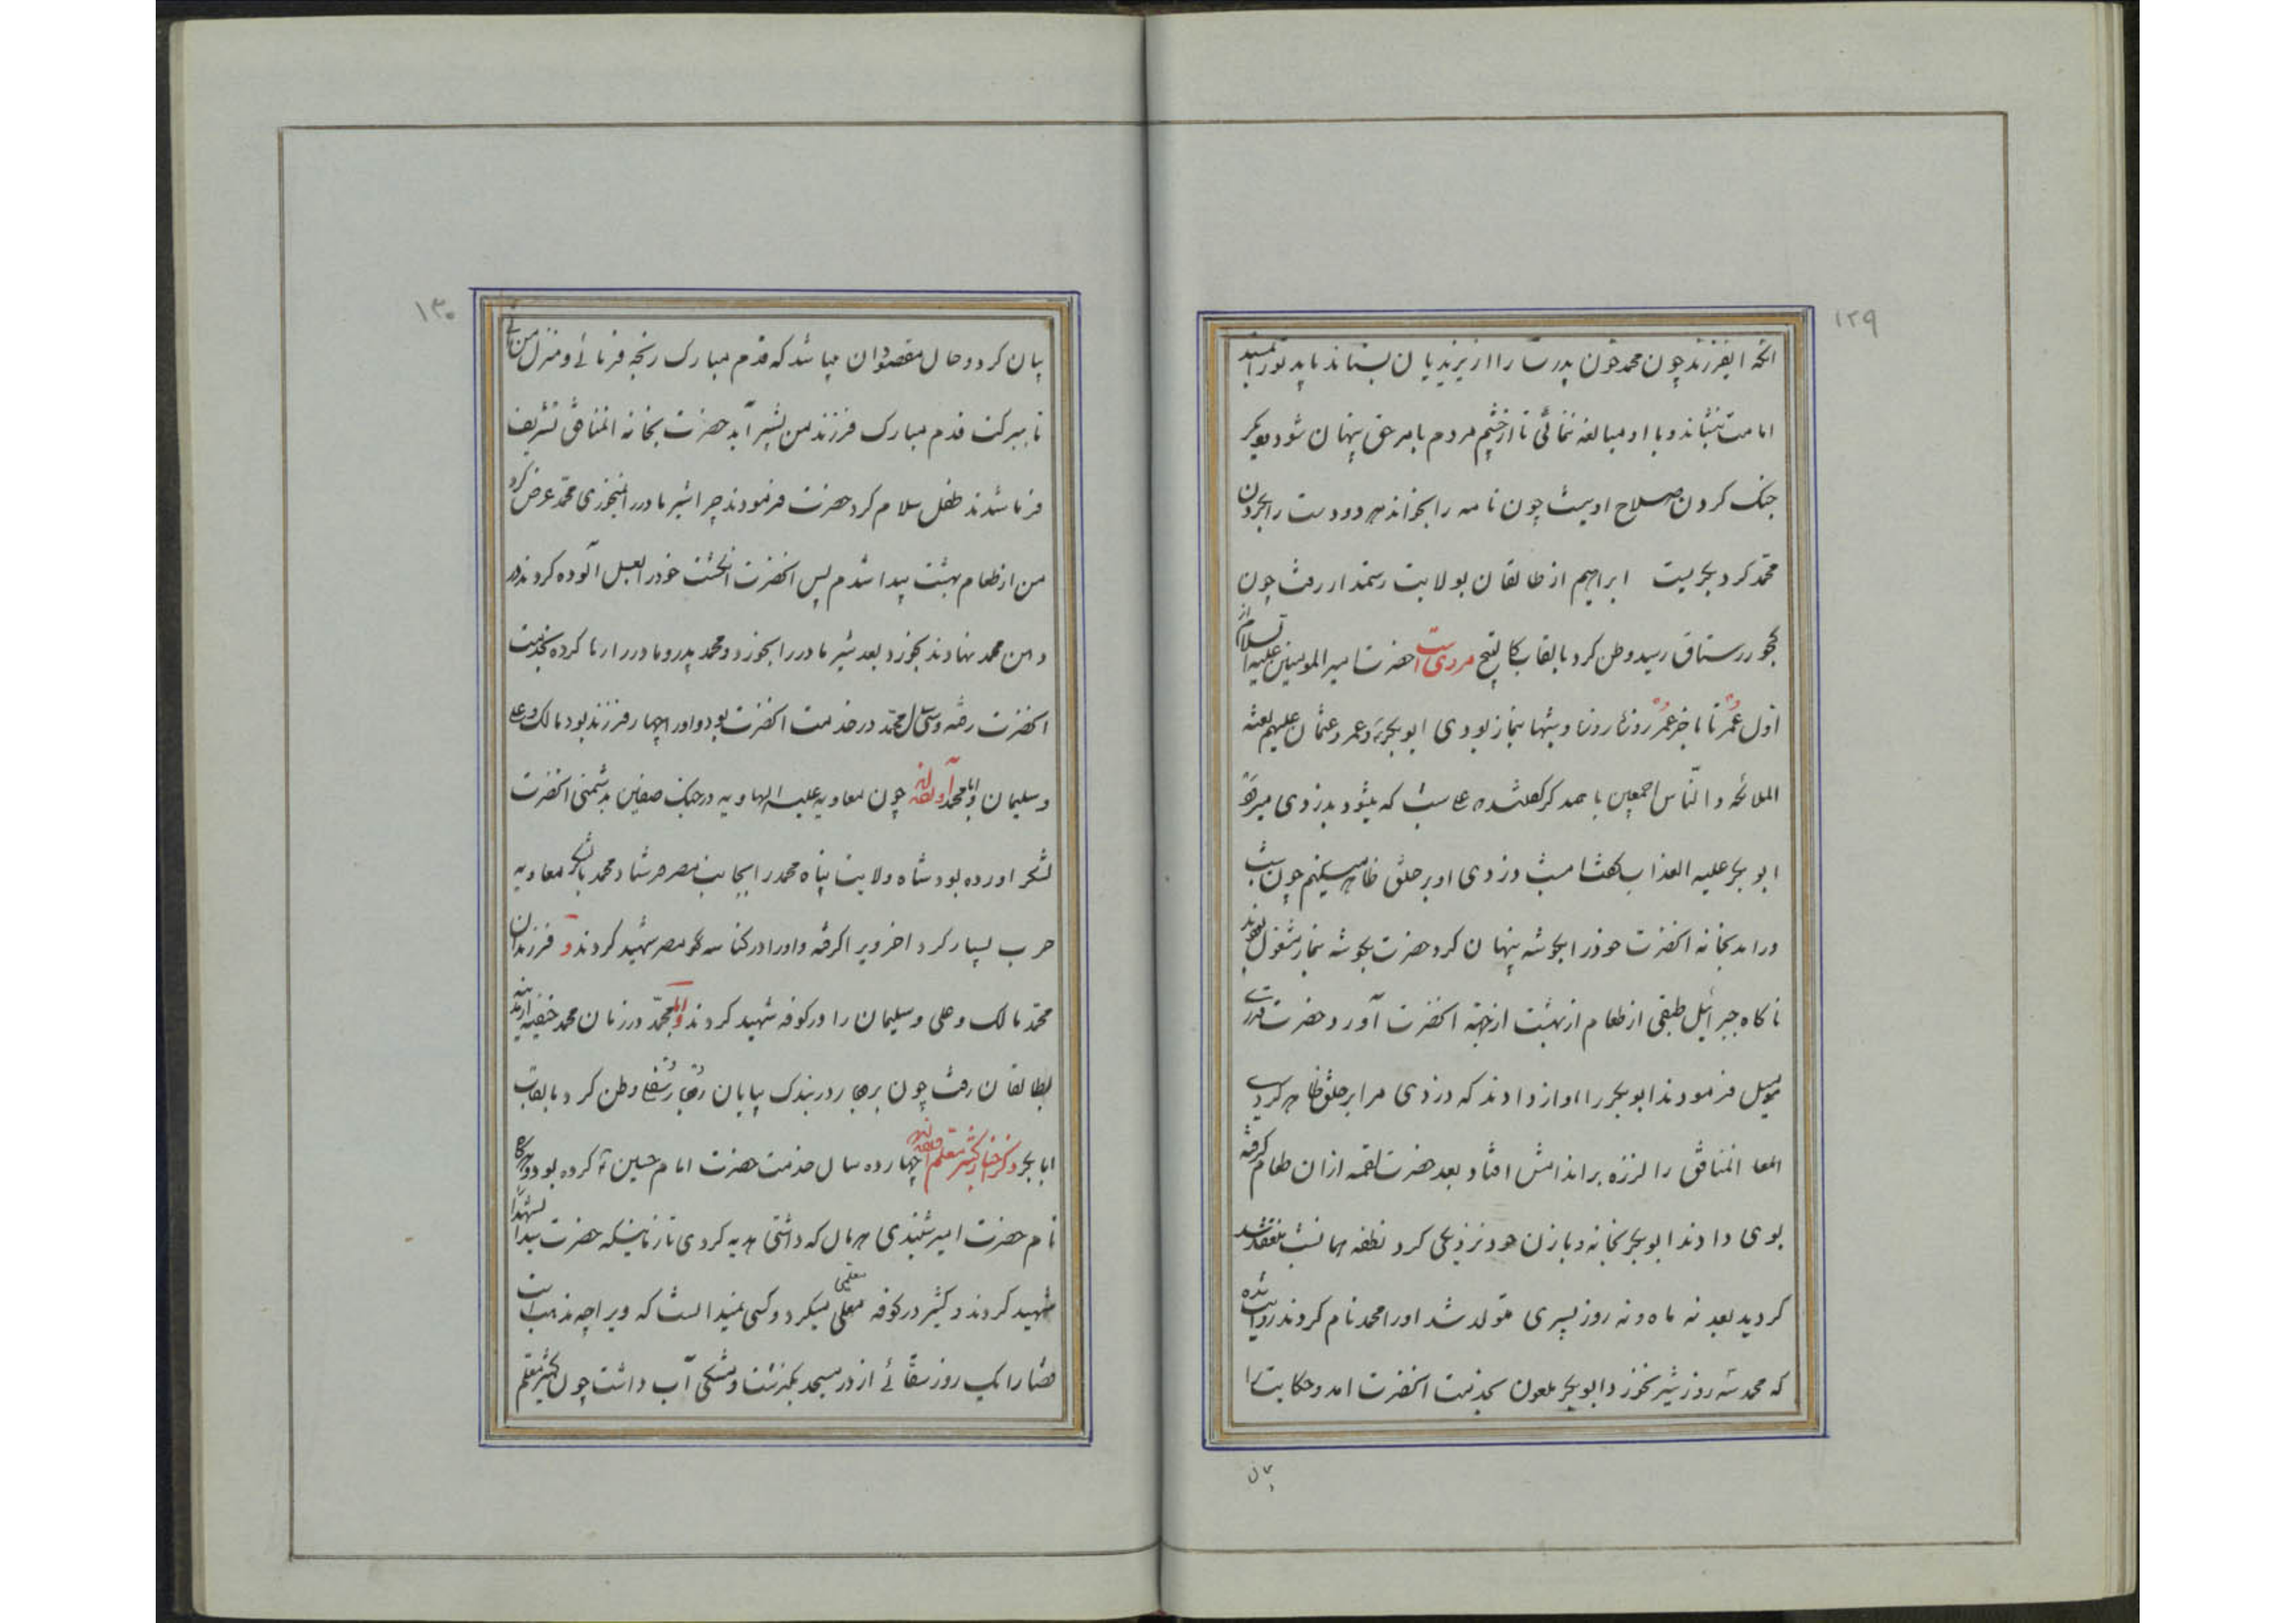 ۱۲۹
انکه ایفرزند چون محمد خون پدرت را از یزیدیان بستاند باید تو را بمسند
امامت بنشاند و با او مبالغه نمائی تا از چشم مردم بامر حق پنهان شود دیگر
جنک کردن صلاح او نیست چون نامه را بخواند هر دو دست را بخون
محمد کرد بگریست ابراهیم از طالقان بولایت رستمدار رفت چون
کجور رستاق رسید وطن کرد بالقاب کا پیتج مردی است حضرت امیر المومنین علیه السلام از
اول عمر تا باخر عمر روزها روزه و شبها بنماز بودی ابوبکر و عمر و عثمان علیهم لعنة
الملائکه و الناس اجمعین با همدیگر گفتند علی شب که میشود بدزدی میرود
ابوبکر علیه العذاب گفت امشب دزدی او بر خلق ظاهر میکنم چون شب
درامد بخانه انحضرت خود را بگوشه پنهان کرد حضرت بگوشه نماز مشغول بودند
ناکاه جبرائیل طبقی از طعام از بهشت از جهة انحضرت آورد حضرت
میل فرمودند ابوبکر را اواز دادند که دزدی مرا بر خلق ظاهر کردی
المعا انمنافق را لرزه بر اندامش افتاد بعد حضرت لقمه ازان طعام کرفته
بوی دادند ابوبکر بخانه و با زن خود نزدیکی کرد نطفه همانشب منعقد شد
کردید بعد نه ماه و نه روز پسری متولد شد او را محمد نام کردند روایت شده
که محمد سه روز شیر نخورد ابوبکر ملعون بخدمت انحضرت امد و حکایت را
۱۳۰
بیان کرد و حال مقصود ان میباشد که قدم مبارک رنجه فرمائی و منزل من
تا ببرکت قدم مبارک فرزند من بشیر آید حضرت بخانه انمنافق تشریف
فرما شدند طفل سلام کرد حضرت فرمودند چرا شیر مادر را نمیخوری محمد عرض کرد
من از طعام بهشت پیدا شدم پس انحضرت انکشت خود را بعسل الوده کردند در
دهن محمد نهادند بخورد بعد شیر مادر را بخورد و محمد پدر و مادر را رها کرده بخدمت
انحضرت رفته و سی سال محمد در خدمت انحضرت بود و او را چهار فرزند بود مالک و علی
و سلیمان و ابا محمد چون معاویه علیه الهاویه در جنک صفین بدشمنی انحضرت
لشکر اورده بود شاه ولایت پناه محمد را بجانب مصر فرستاد محمد با لشکر معاویه
حرب بسیار کرد اخر ویرا کرفته و او را در کناسه کو مصر شهید کردند و فرزندان
محمد مالک و علی و سلیمان را در کوفه شهید کردند و ابا محمد در زمان محمد حنفیه
بطالقان رفت چون در بندک بپایان وطن کرد بالقاب
ابابکر ذکر اخبار کثیر معلم چهارده سال خدمت حضرت امام حسین ع کرده بود و هرکاه
نام حضرت امیر شنیدی هر مال که داشتی هدیه کردی تا زمانیکه حضرت سید الشهدا را
شهید کردند و کثیر در کوفه معلمی میکرد و کسی نمیدانست که ویرا چه مذهب است
قضا را یک روز سقائی از در مسجد بگذشت و مشکی آب داشت چون کثیر معلم